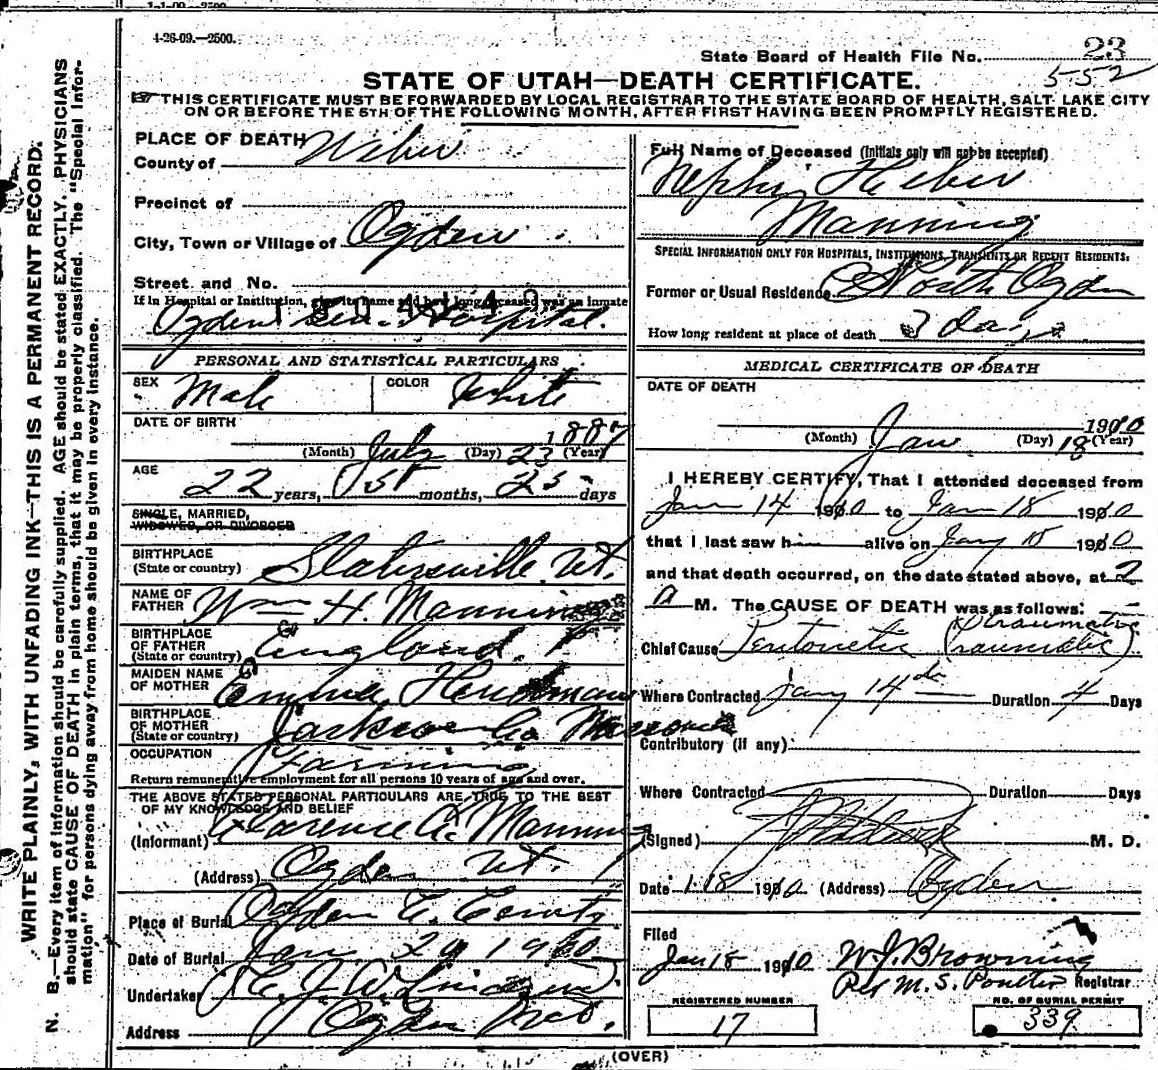 1-1-09 2500
4-26-09.—2500.
State Board of Health File No. 23
552
STATE OF UTAH—DEATH CERTIFICATE.
THIS CERTIFICATE MUST BE FORWARDED BY LOCAL REGISTRAR TO THE STATE BOARD OF HEALTH, SALT LAKE CITY
ON OR BEFORE THE 5TH OF THE FOLLOWING MONTH, AFTER FIRST HAVING BEEN PROMPTLY REGISTERED.
WRITE PLAINLY, WITH UNFADING INK—THIS IS A PERMANENT RECORD.
N. B.—Every item of information should be carefully supplied. AGE should be stated EXACTLY. PHYSICIANS
should state CAUSE OF DEATH in plain terms, that it may be properly classified. The "Special Infor-
mation" for persons dying away from home should be given in every instance.
PLACE OF DEATH
County of Weber
Precinct of
City, Town or Village of Ogden
Street and No.
If in Hospital or Institution, give its name and how long deceased was an inmate
Ogden Gen. Hospital.
PERSONAL AND STATISTICAL PARTICULARS
SEX Male COLOR White
DATE OF BIRTH
(Month) July (Day) 23 1887 (Year)
AGE
22 years, 5 months, 25 days
SINGLE, MARRIED,
WIDOWED, OR DIVORCED
BIRTHPLACE
(State or country) Slatersville Ut.
NAME OF
FATHER Wm H. Manning
BIRTHPLACE
OF FATHER
(State or country) England
MAIDEN NAME
OF MOTHER Emma
BIRTHPLACE
OF MOTHER
(State or country) Jackson Co. Missouri
OCCUPATION Farming
Return remunerative employment for all persons 10 years of age and over.
THE ABOVE STATED PERSONAL PARTICULARS ARE TRUE TO THE BEST
OF MY KNOWLEDGE AND BELIEF
(Informant) Clarence Manning
(Address) Ogden Ut.
Place of Burial Ogden
Date of Burial Jan. 20 1910
Undertaker
Address Ogden
Full Name of Deceased (Initials only will not be accepted)
Nephi Heber
Manning
SPECIAL INFORMATION ONLY FOR HOSPITALS, INSTITUTIONS, TRANSIENTS OR RECENT RESIDENTS:
Former or Usual Residence North Ogden
How long resident at place of death 3 days
MEDICAL CERTIFICATE OF DEATH
DATE OF DEATH
(Month) Jan (Day) 18 1910 (Year)
I HEREBY CERTIFY, That I attended deceased from
Jan 14 1910 to Jan 18 1910
that I last saw h alive on Jany 18 1910
and that death occurred, on the date stated above, at 2
a M. The CAUSE OF DEATH was as follows:
Chief Cause Peritonitis (Traumatic)
Where Contracted Jany 14 Duration 4 Days
Contributory (if any)
Where Contracted Duration Days
(Signed) M. D.
Date 1-18 1910 (Address) Ogden
Filed
Jan 18 1910 W. J. Browning
Per M. S. Poulter Registrar
REGISTERED NUMBER
17
NO. OF BURIAL PERMIT
339
(OVER)